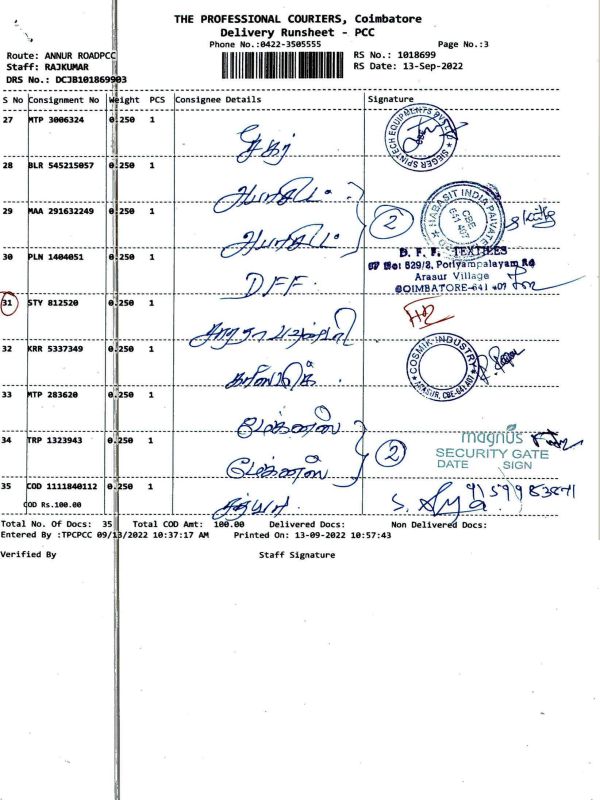 THE PROFESSIONAL COURIERS, Coimbatore
Delivery Runsheet - PCC
Phone No.:0422-3505555
Page No.:3
Route: ANNUR ROADPCC
RS No.: 1018699
Staff: RAJKUMAR
RS Date: 13-Sep-2022
DRS No.: DCJB101869903
S No Consignment No Weight PCS Consignee Details Signature
27 MTP 3006324 0.250 1
SIEGER SPINTECH EQUIPMENTS
28 BLR 545215057 0.250 1
29 MAA 291632249 0.250 1
2
HABASIT INDIA PRIVATE
CBE
641 407
30 PLN 1404051 0.250 1 DFF
D. F. F. TEXTILES
Arasur Village
COIMBATORE-641 407
31 STY 812520 0.250 1
32 KRR 5337349 0.250 1
COSMIK INDUSTRY
ARASUR, CBE-641 407
33 MTP 283620 0.250 1
34 TRP 1323943 0.250 1
2
magnus
SECURITY GATE
DATE SIGN
35 COD 1111840112 0.250 1
COD Rs.100.00
Total No. Of Docs: 35 Total COD Amt: 100.00 Delivered Docs: Non Delivered Docs:
Entered By :TPCPCC 09/13/2022 10:37:17 AM Printed On: 13-09-2022 10:57:43
Verified By Staff Signature